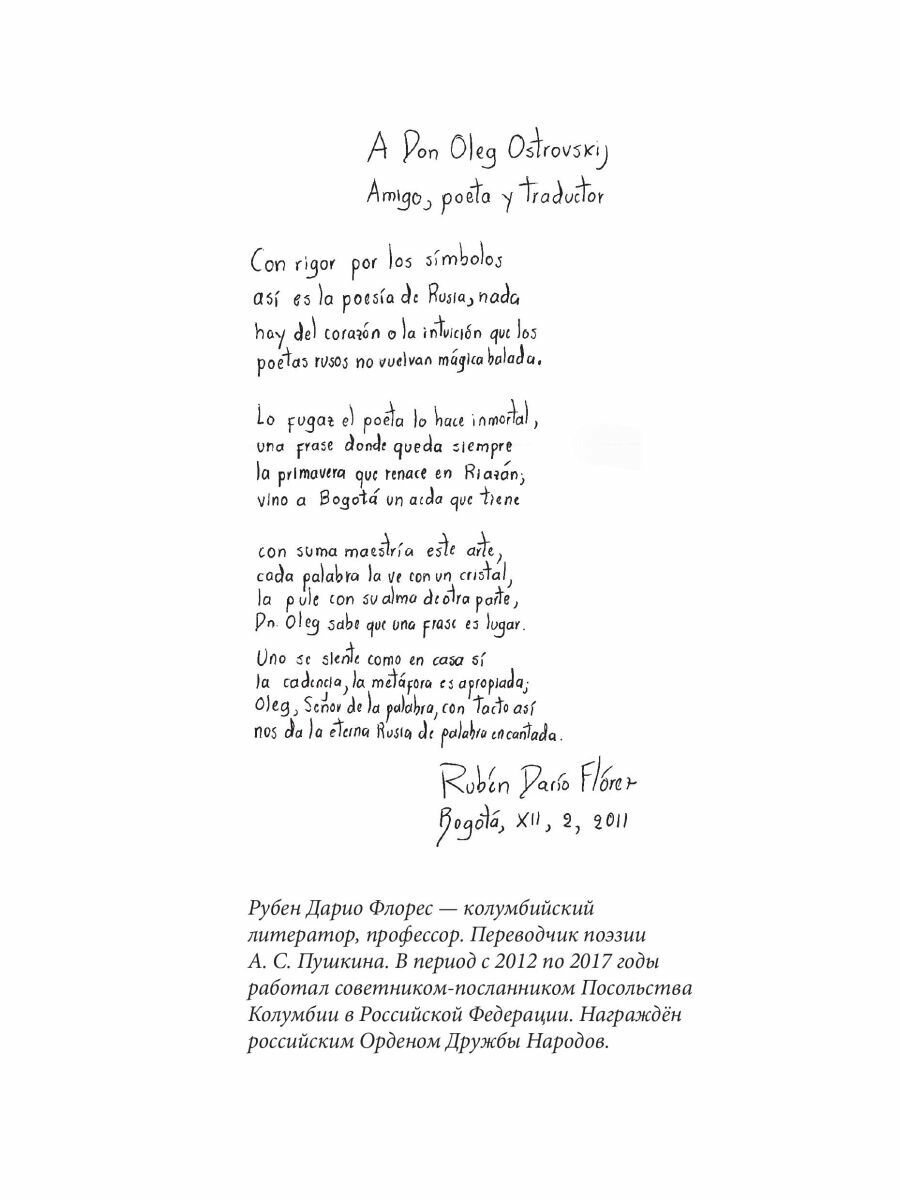 A Don Oleg Ostrovskij
Amigo, poeta y traductor
Con rigor por los símbolos
así es la poesía de Rusia, nada
hay del corazón o la intuición que los
poetas rusos no vuelvan mágica balada.
Lo fugaz el poeta lo hace inmortal,
una frase donde queda siempre
la primavera que renace en Riazán;
vino a Bogotá un aeda que tiene
con suma maestría este arte,
cada palabra la ve con un cristal,
la pule con su alma de otra parte,
Dn. Oleg sabe que una frase es lugar.
Uno se siente como en casa sí
la cadencia, la metáfora es apropiada;
Oleg, Señor de la palabra, con tacto así
nos da la eterna Rusia de palabra encantada.
Rubén Darío Flórez
Bogotá, XII, 2, 2011
Рубен Дарио Флорес — колумбийский
литератор, профессор. Переводчик поэзии
А. С. Пушкина. В период с 2012 по 2017 годы
работал советником-посланником Посольства
Колумбии в Российской Федерации. Награждён
российским Орденом Дружбы Народов.